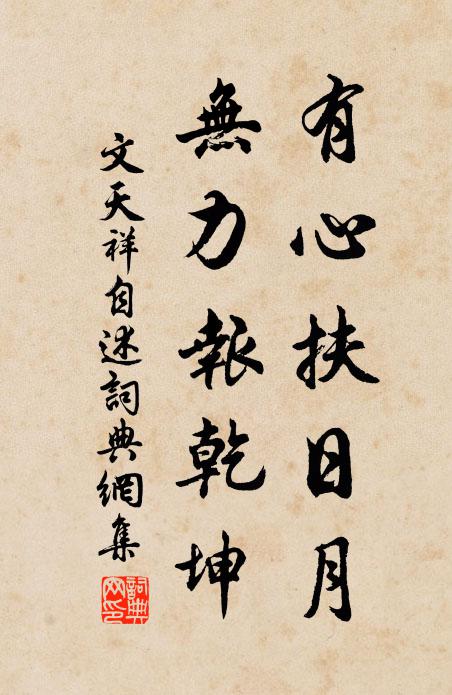 有心扶日月
無力報乾坤
文天祥自述詞典網集
詞典網印